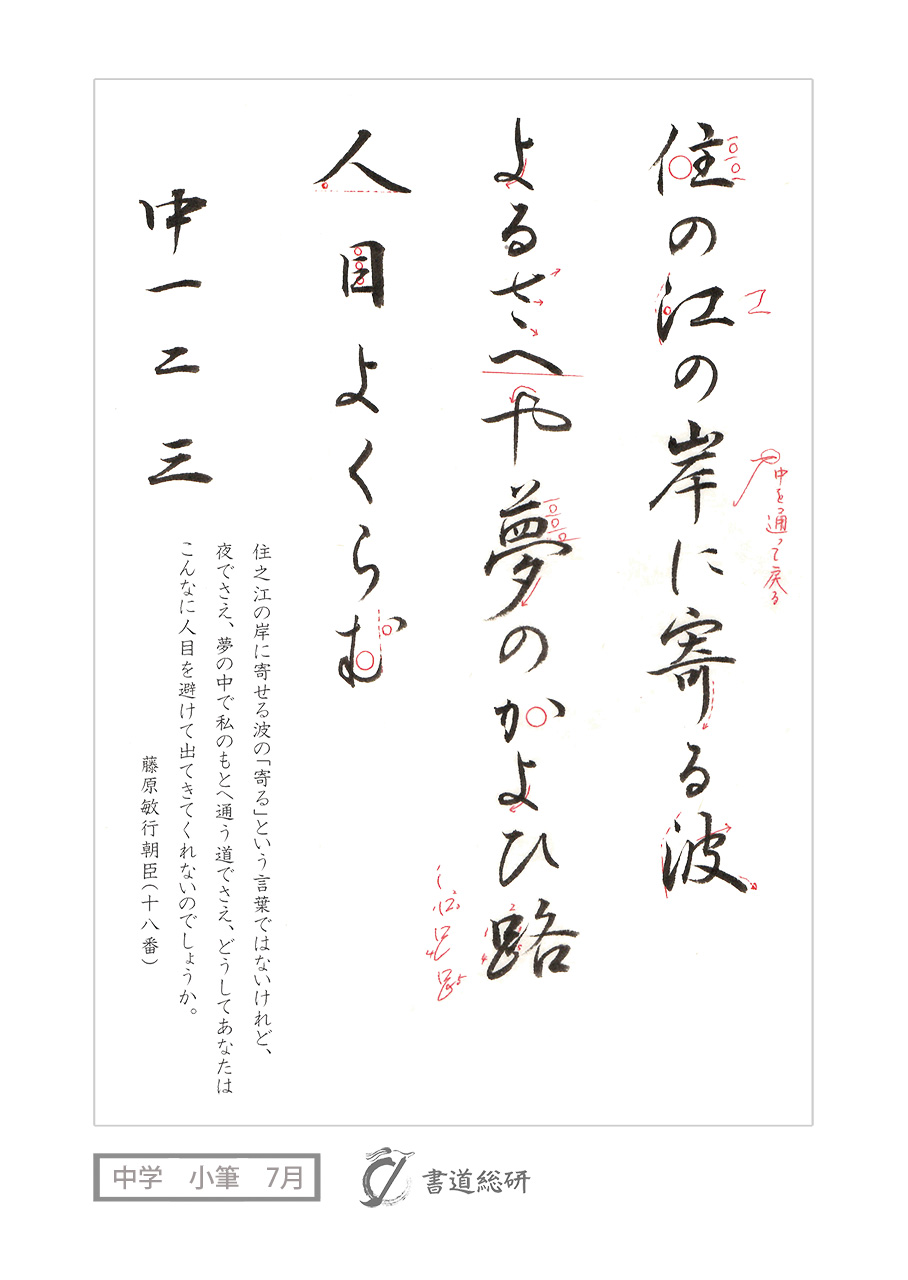 住の江の岸に寄る波
よるさへや夢のかよひ路
人目よくらむ
中一二三
中を通って戻る
住之江の岸に寄せる波の「寄る」という言葉ではないけれど、
夜でさえ、夢の中で私のもとへ通う道でさえ、どうしてあなたは
こんなに人目を避けて出てきてくれないのでしょうか。
藤原敏行朝臣(十八番)
中学 小筆 7月
書道総研